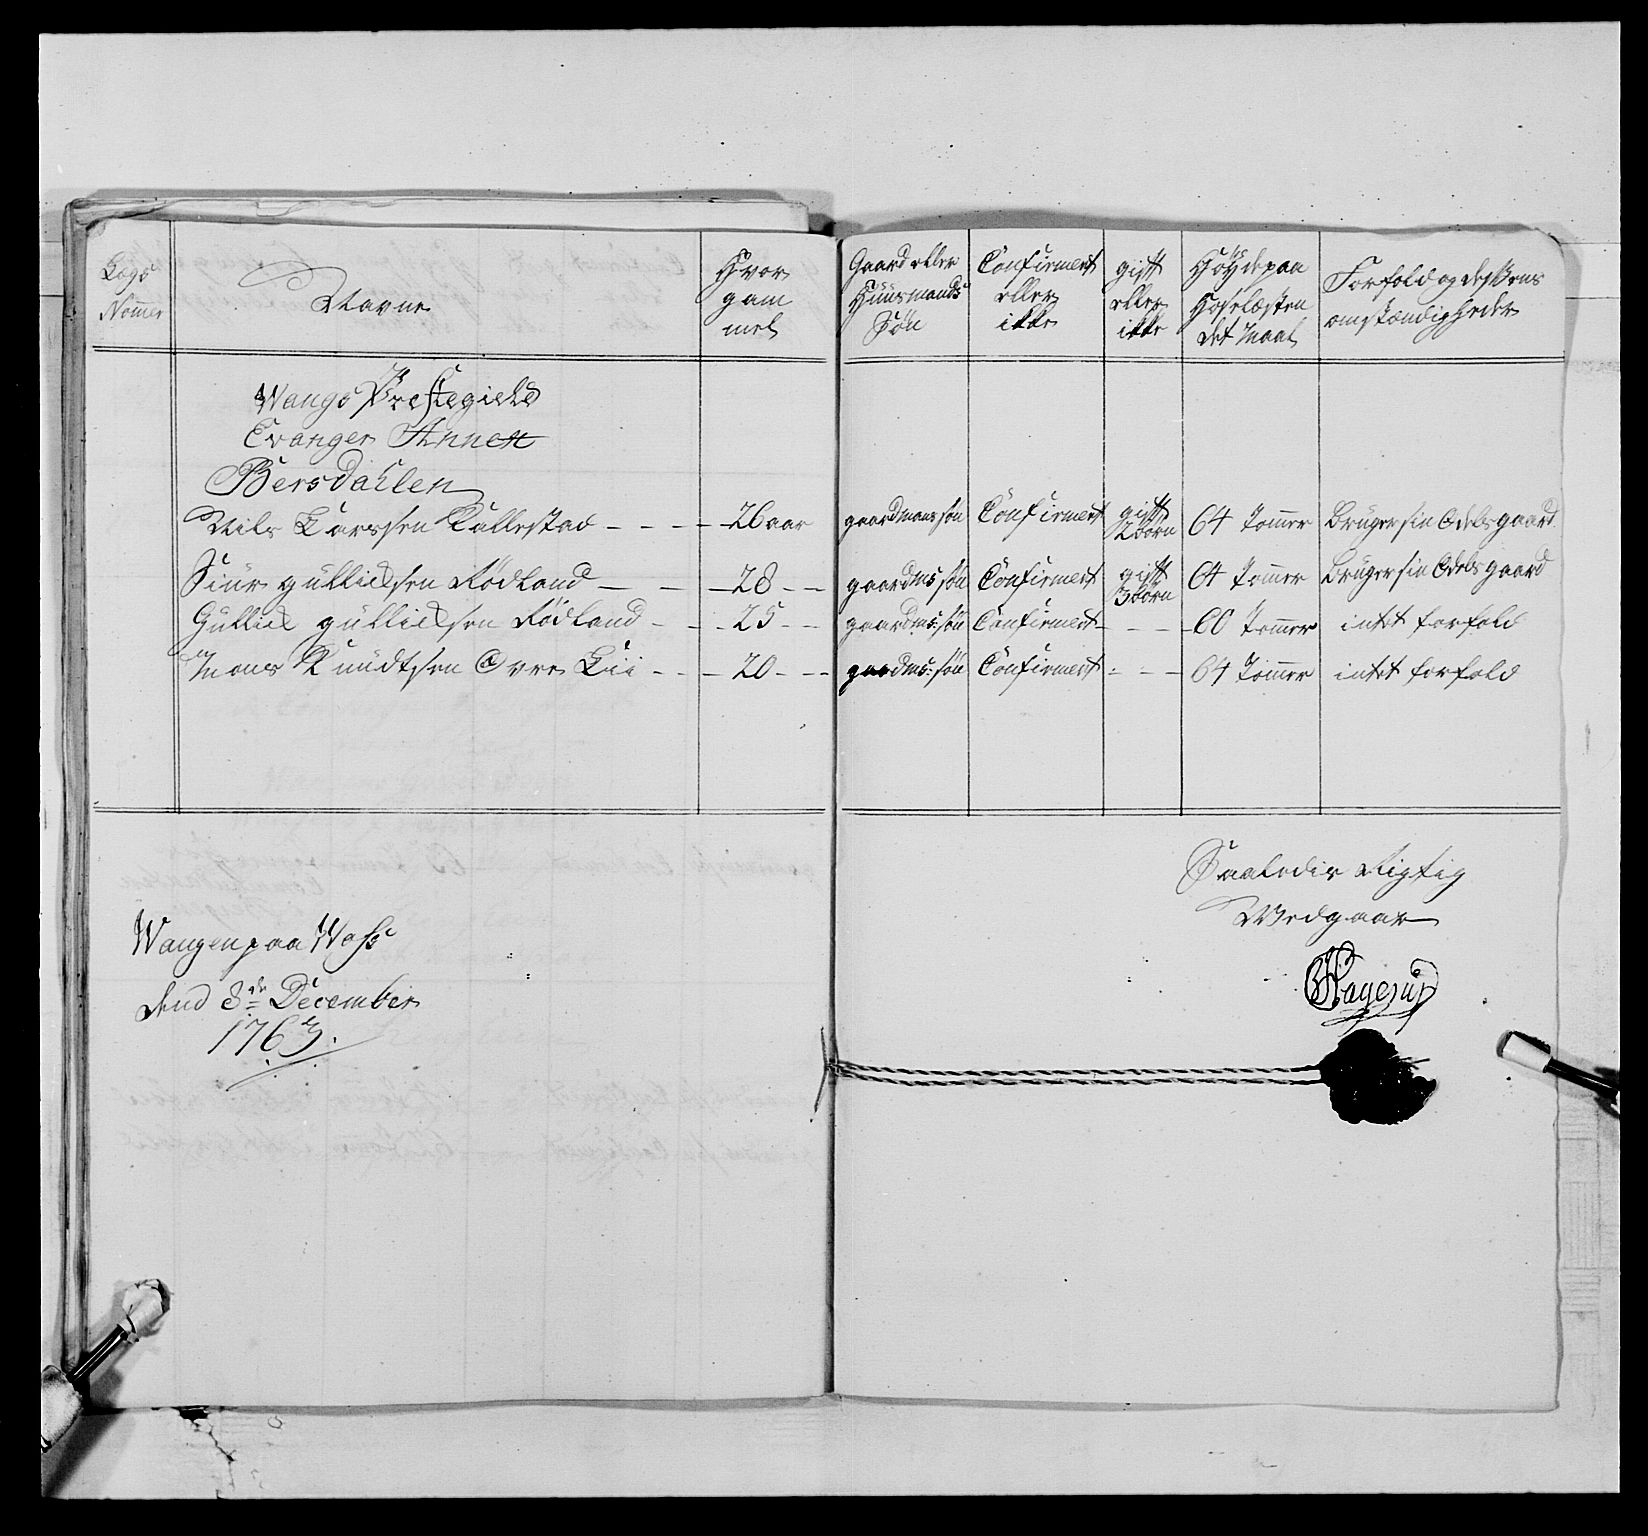 Lægs Nommer | Navne | Hvor gam mel | Gaard eller Huusmands Søn | Confirmert eller ikke | gift eller ikke | Høyde paa Hoselæsten det Maal | Forfald og deslens omstændigheder
Wangs Prestegield
Evanger Annex
Bersdahlen
Nils Larssen Kallestad - - - - 26 aar | gaardmans søn | Confirmert | gift 2 børn | 64 Tommer | Bruger sin Odels gaard
Siur gullicksen Rødland - - - 28 - - | gaardms søn | Confirmert | gift 3 børn | 64 Tommer | Bruger sin Odels gaard
Gullick gullicksen Rødland - - - 25 - - | gaardms: søn | Confirmert - - - | 60 Tommer | intet forfald
Mons Knudtsen Øvre Lii - - - 20 - - - | gaardms: søn | Confirmert - - - | 64 Tommer | intet forfald
Saaledis Rigtig
Vedgaar
Wangen paa Woss
dend 8de December
1763.
Hagerup